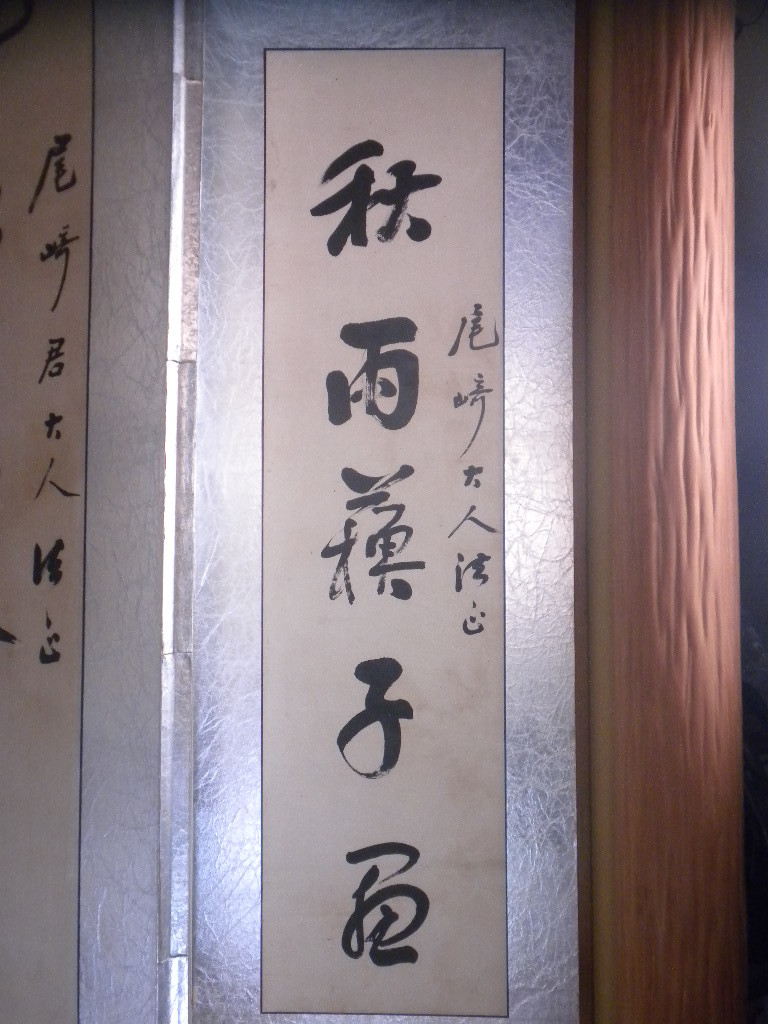 尾崎大人法正
秋雨蘋子画
尾崎君大人法正